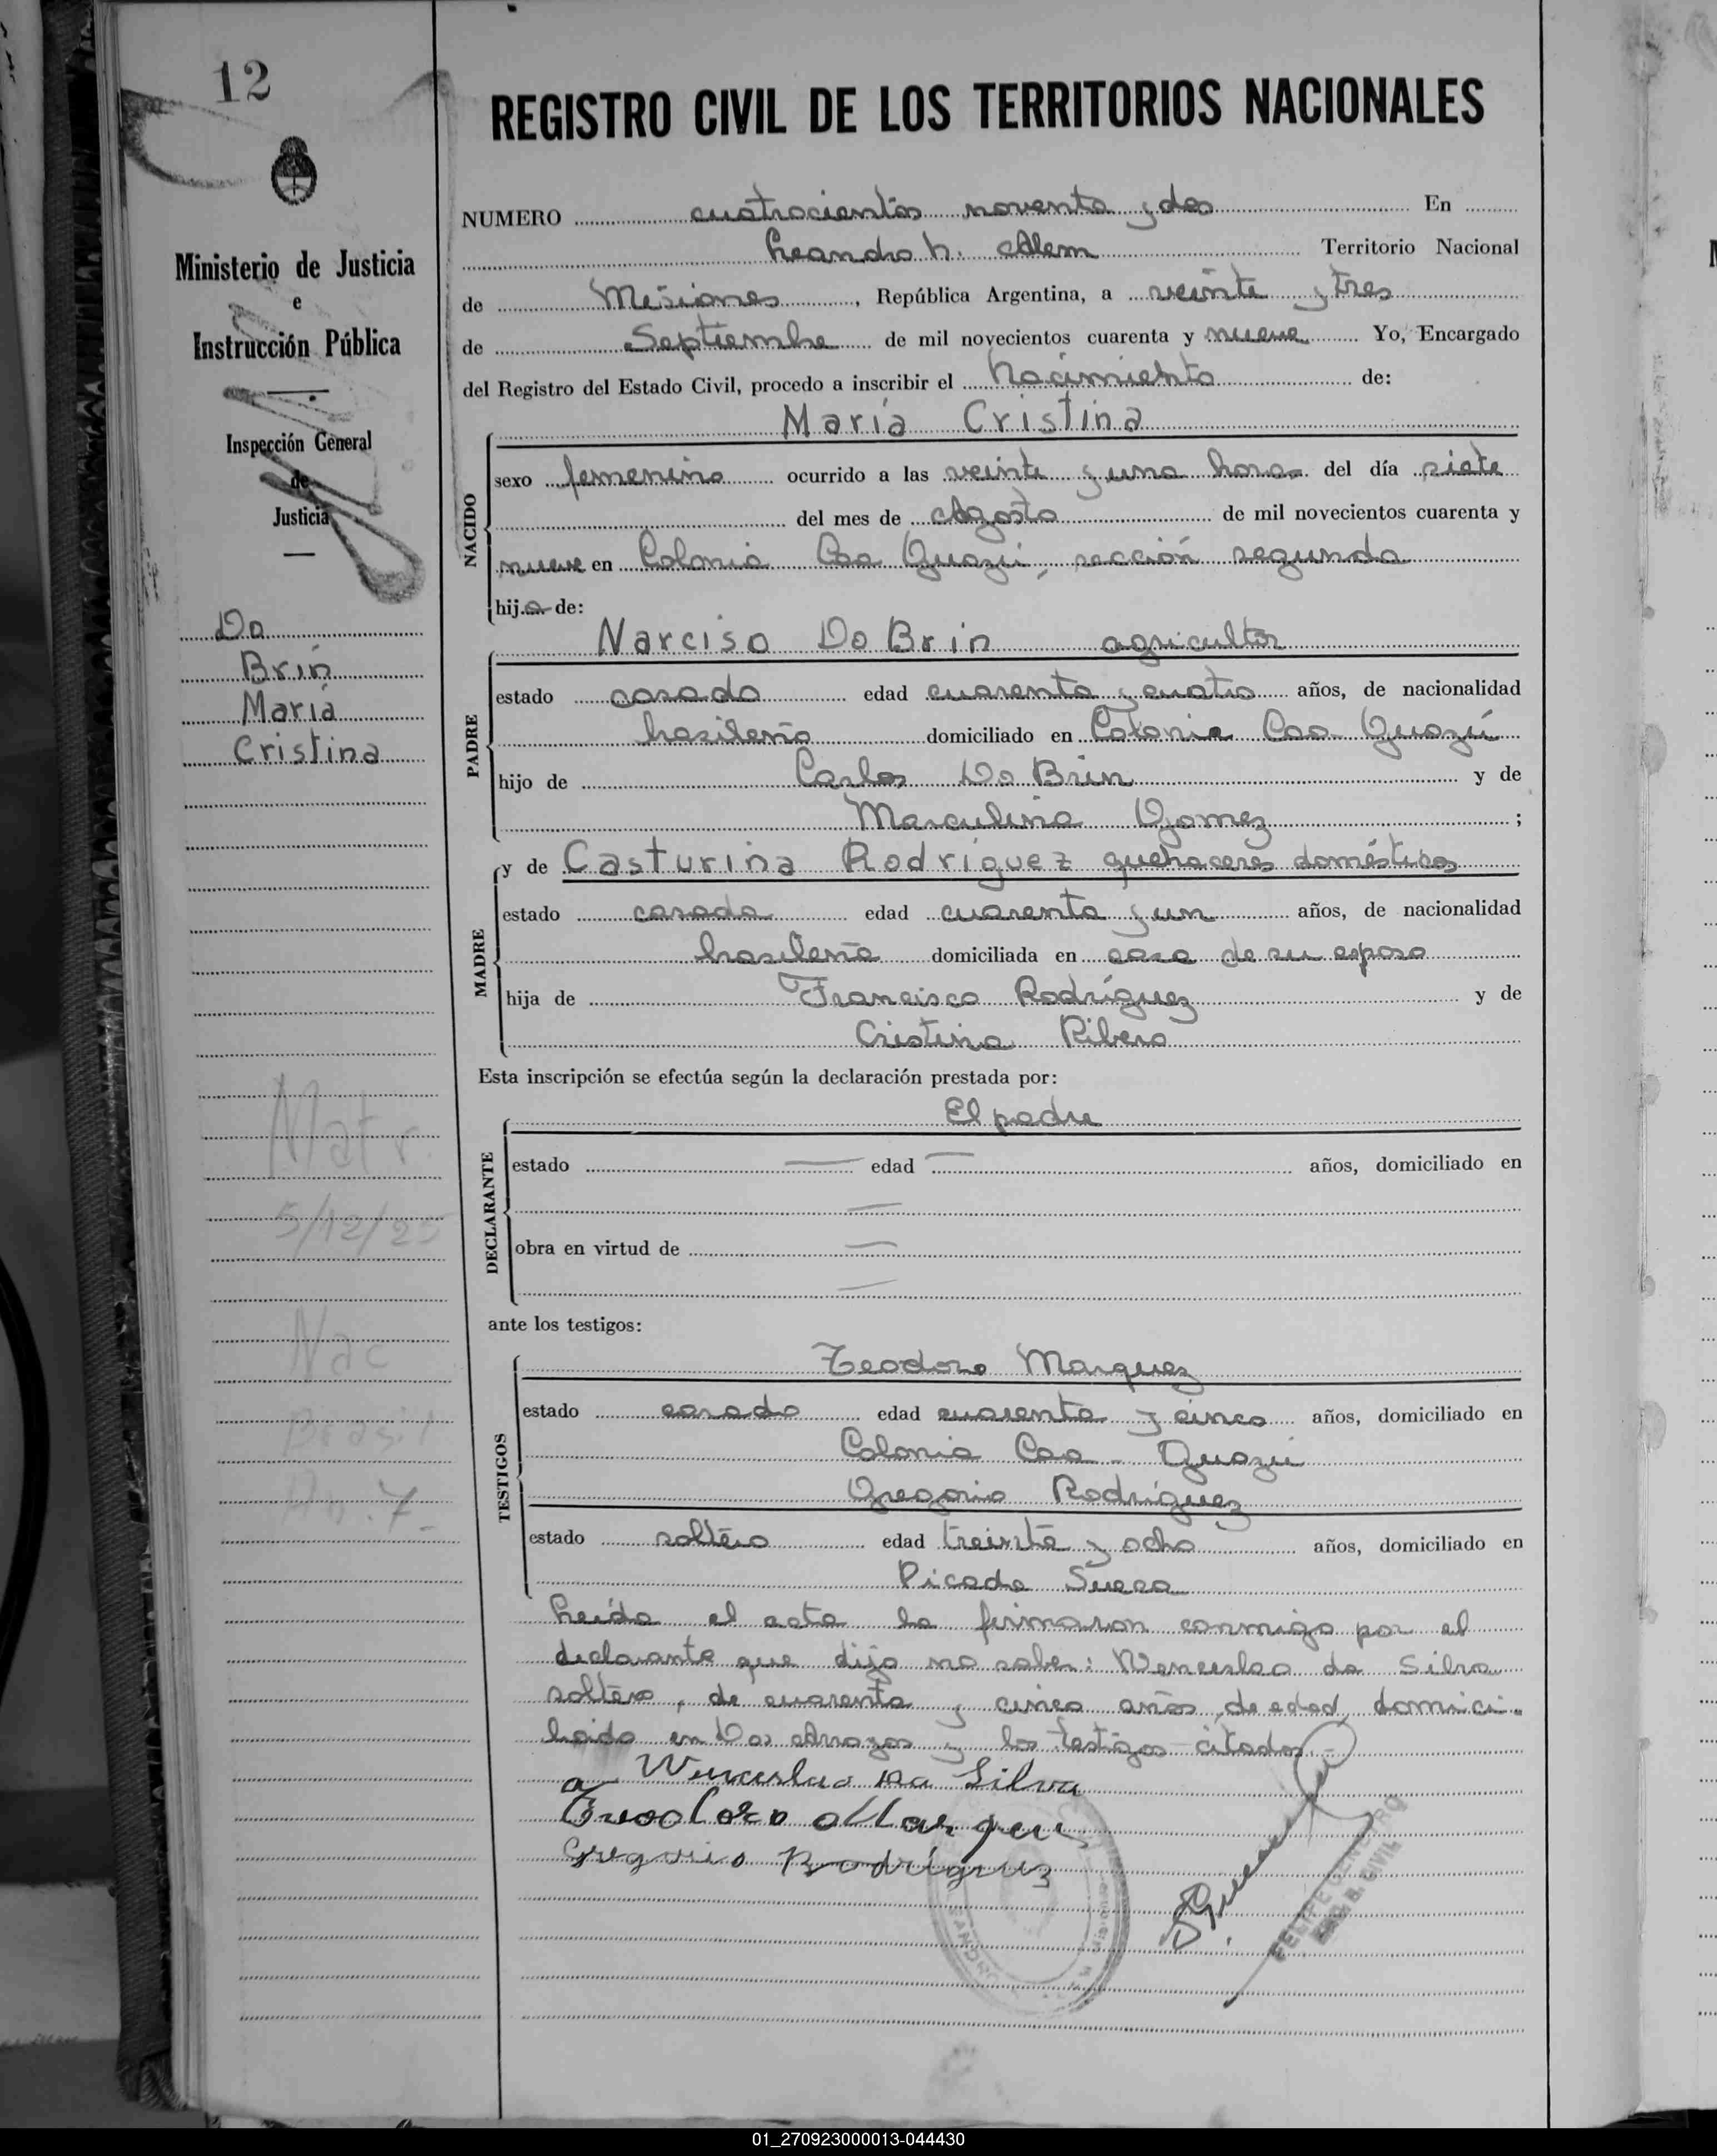 12
REGISTRO CIVIL DE LOS TERRITORIOS NACIONALES
Ministerio de Justicia
e
Instrucción Pública
Inspección General
de
Justicia
Do
Brin
María
Cristina
Matr.
5/12/25
Nac
Brasil
An. 7
NUMERO cuatrocientos noventa y dos En
Leandro N. Alem Territorio Nacional
de Misiones, República Argentina, a veinte y tres
de Septiembre de mil novecientos cuarenta y nueve Yo, Encargado
del Registro del Estado Civil, procedo a inscribir el Nacimiento de:
María Cristina
NACIDO
sexo femenino ocurrido a las veinte y una horas del día siete
del mes de Agosto de mil novecientos cuarenta y
nueve en Colonia Caa Guazú, sección segunda
hija de:
PADRE
Narciso Do Brin agricultor
estado casado edad cuarenta y cuatro años, de nacionalidad
brasileño domiciliado en Colonia Caa Guazú
hijo de Carlos Do Brin y de
Marculina Gomez ;
MADRE
y de Casturina Rodríguez quehaceres domésticos
estado casada edad cuarenta y un años, de nacionalidad
brasileña domiciliada en casa de su esposo
hija de Francisco Rodríguez y de
Cristina Ribero
Esta inscripción se efectúa según la declaración prestada por:
DECLARANTE
El padre
estado — edad — años, domiciliado en
—
obra en virtud de —
—
ante los testigos:
TESTIGOS
Teodoro Marquez
estado casado edad cuarenta y cinco años, domiciliado en
Colonia Caa - Guazú
Gregorio Rodríguez
estado soltero edad treinta y ocho años, domiciliado en
Picada Sueca
Leída el acta la firmaron conmigo por el
declarante que dijo no saber: Wenceslao da Silva
soltero, de cuarenta y cinco años, de edad, domici-
liado en Dos Arroyos y los testigos citados.-
a Wenceslao da Silva
Gregorio Rodríguez
FELIPE
ENC. R. CIVIL
01_270923000013-044430